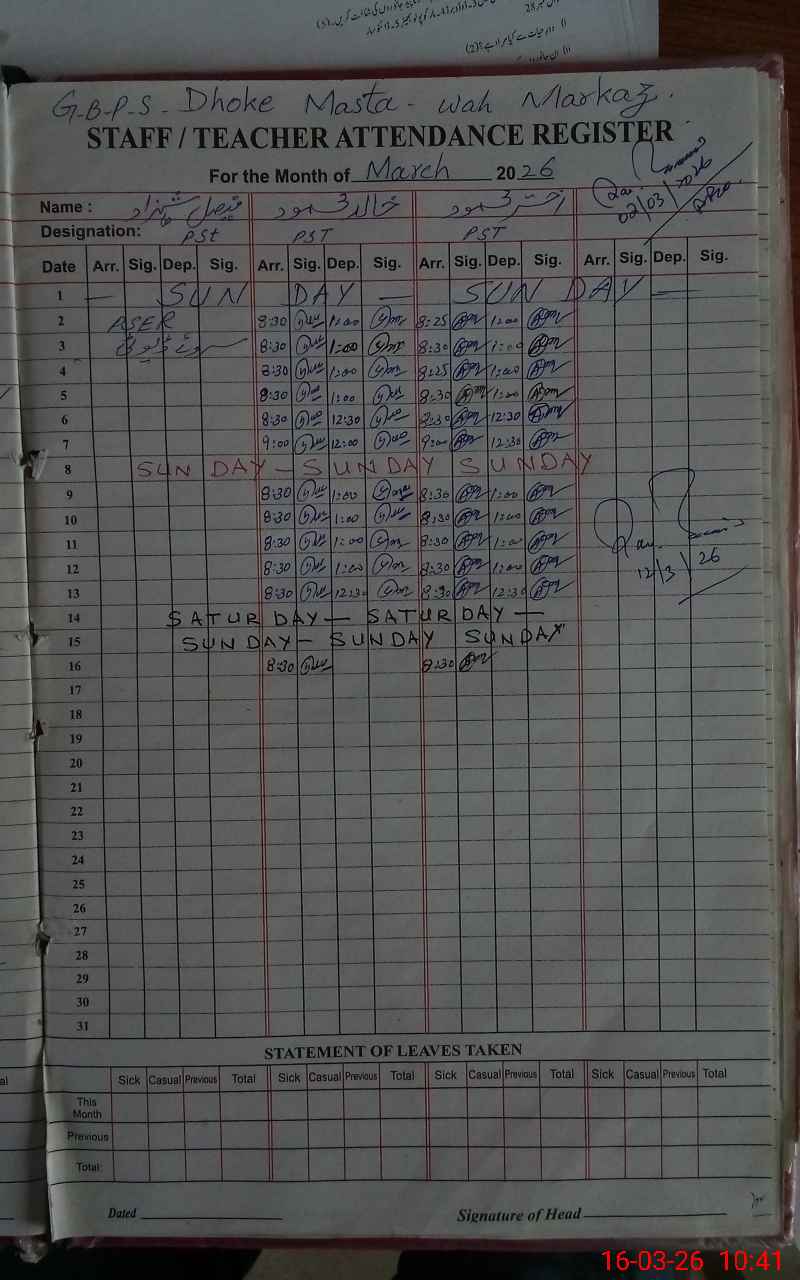 G-B-P-S- Dhoke Masta - wah Markaz.
STAFF / TEACHER ATTENDANCE REGISTER
For the Month of March 2026
02/03/2026
Name : فیصل شہزاد خالد محمود اختر محمود
Designation: PSt PST PST
Date Arr. Sig. Dep. Sig. Arr. Sig. Dep. Sig. Arr. Sig. Dep. Sig. Arr. Sig. Dep. Sig.
1 — SUN DAY — SUN DAY —
2 ASER 8:30 1:00 8:25 1:00
3 8:30 1:00 8:30 1:00
4 8:30 1:00 8:25 1:00
5 8:30 1:00 8:30 1:00
6 8:30 12:30 8:30 12:30
7 9:00 12:00 9:00 12:30
8 SUN DAY — SUNDAY SUNDAY
9 8:30 1:00 8:30 1:00
10 8:30 1:00 8:30 1:00
11 8:30 1:00 8:30 1:00
12 8:30 1:00 8:30 1:00
12/3/26
13 8:30 12:30 8:30 12:30
14 SATUR DAY — SATURDAY —
15 SUNDAY — SUNDAY SUNDAY
16 8:30 8:30
17
18
19
20
21
22
23
24
25
26
27
28
29
30
31
STATEMENT OF LEAVES TAKEN
Sick Casual Previous Total Sick Casual Previous Total Sick Casual Previous Total Sick Casual Previous Total
This Month
Previous
Total:
Dated Signature of Head
16-03-26 10:41